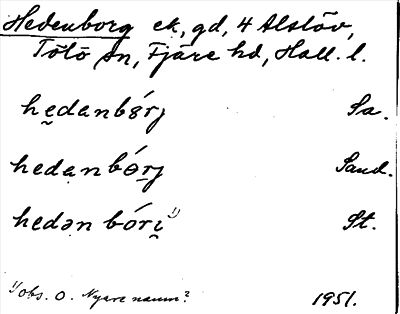 Hedenborg ek, gd, 4 Alslöv,
Tölö sn, Fjäre hd, Hall. l.
hedanbɵ́rj Sa.
hedanbɵ́rj Sand.
hedən bóri 1) St.
1) obs. o. Nyare namn? 1951.